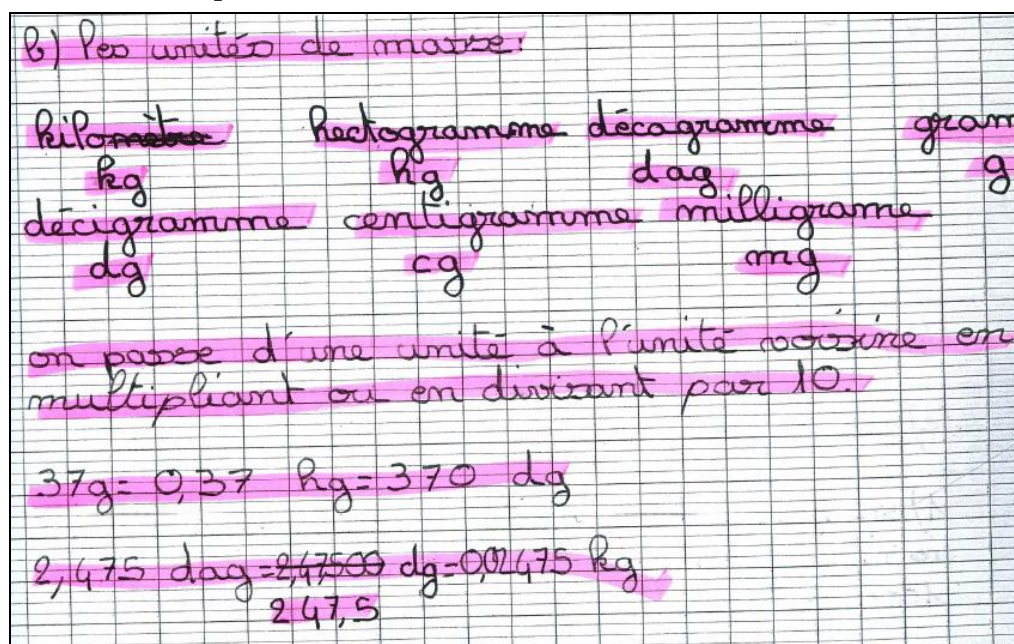 b) les unités de masse:
kilomètre hectogramme décagramme gram
kg hg dag g
décigramme centigramme milligrame
dg cg mg
on passe d'une unité à l'unité voisine en
multipliant ou en divisant par 10.
37g = 0,37 hg = 370 dg
2,475 dag = 2,47500 dg = 0,02475 kg
247,5